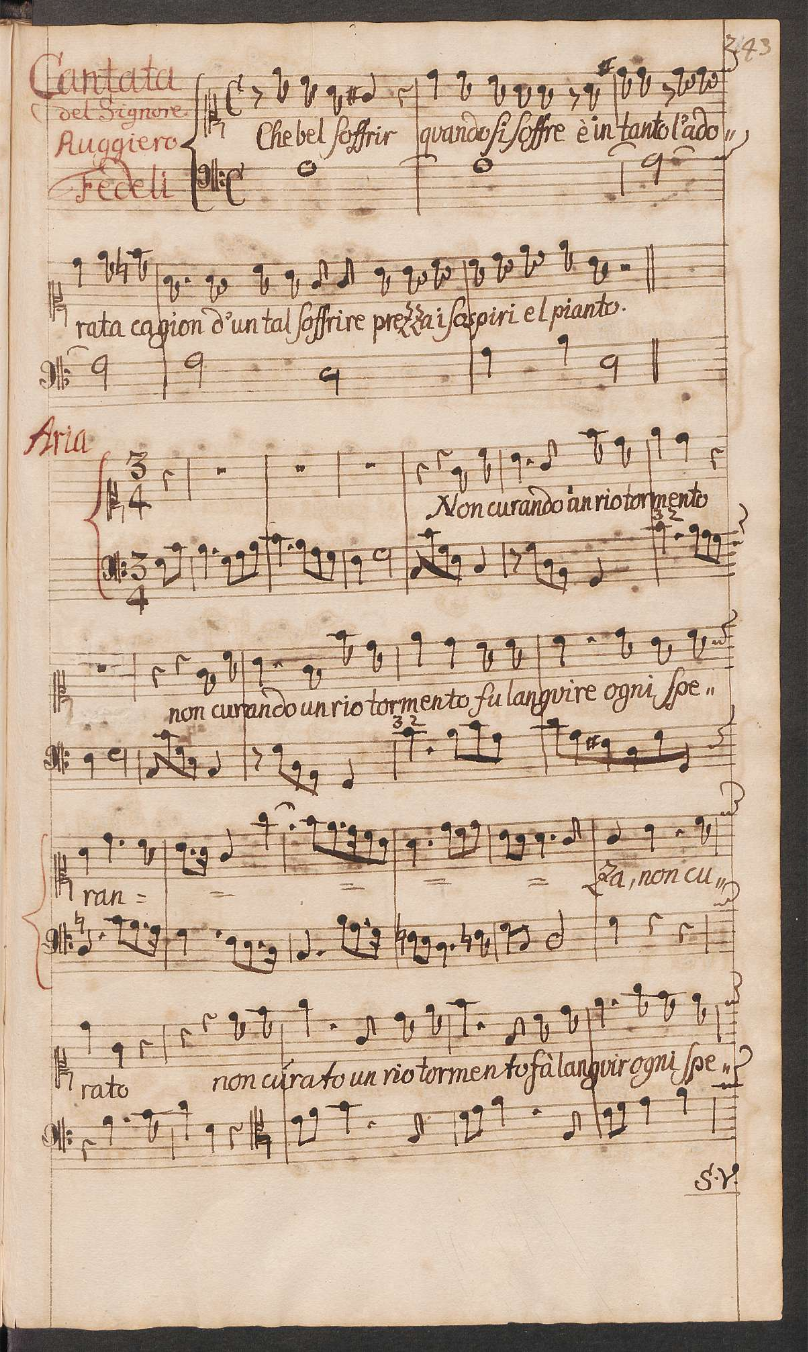 243
Cantata
del Signore
Ruggiero
Fedeli
Che bel soffrir quando si soffre è in tanto l'ado„
rata cagion d'un tal soffrire prezza i sospiri e l pianto.
Aria
3 4
Non curando un rio tormento
3 4
3 2
non curando un rio tormento fu languire ogni spe„
3 2
ran = = = = =
za, non cu„
rato non curato un rio tormento fà languir ogni spe„
S.V.